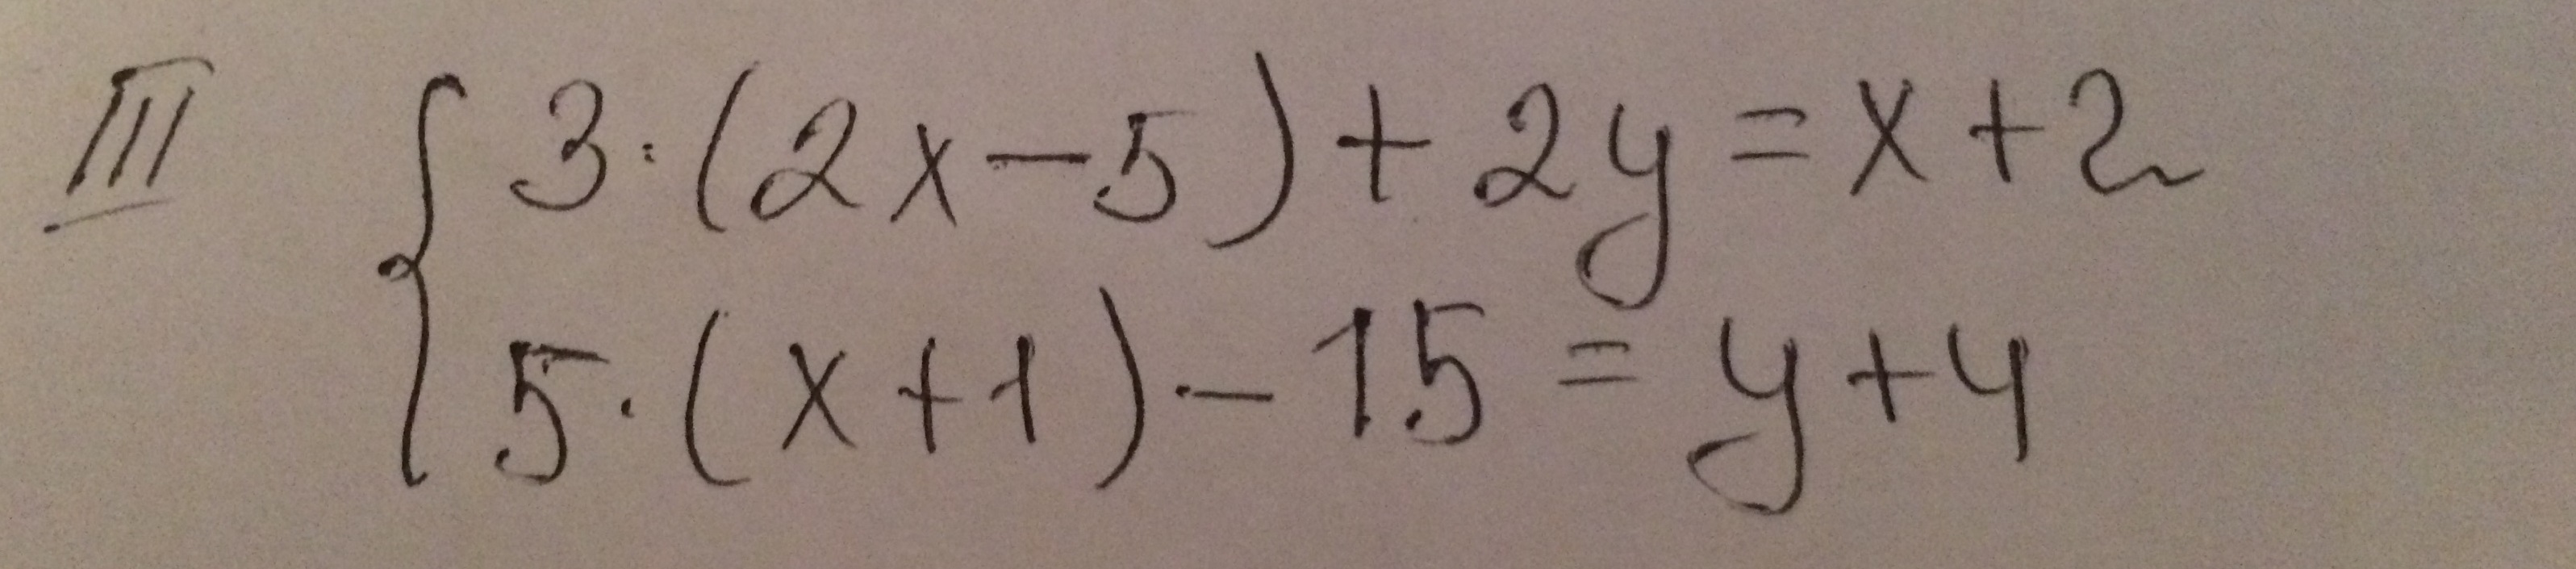 III { 3·(2x-5)+2y=x+2
5·(x+1)-15=y+4